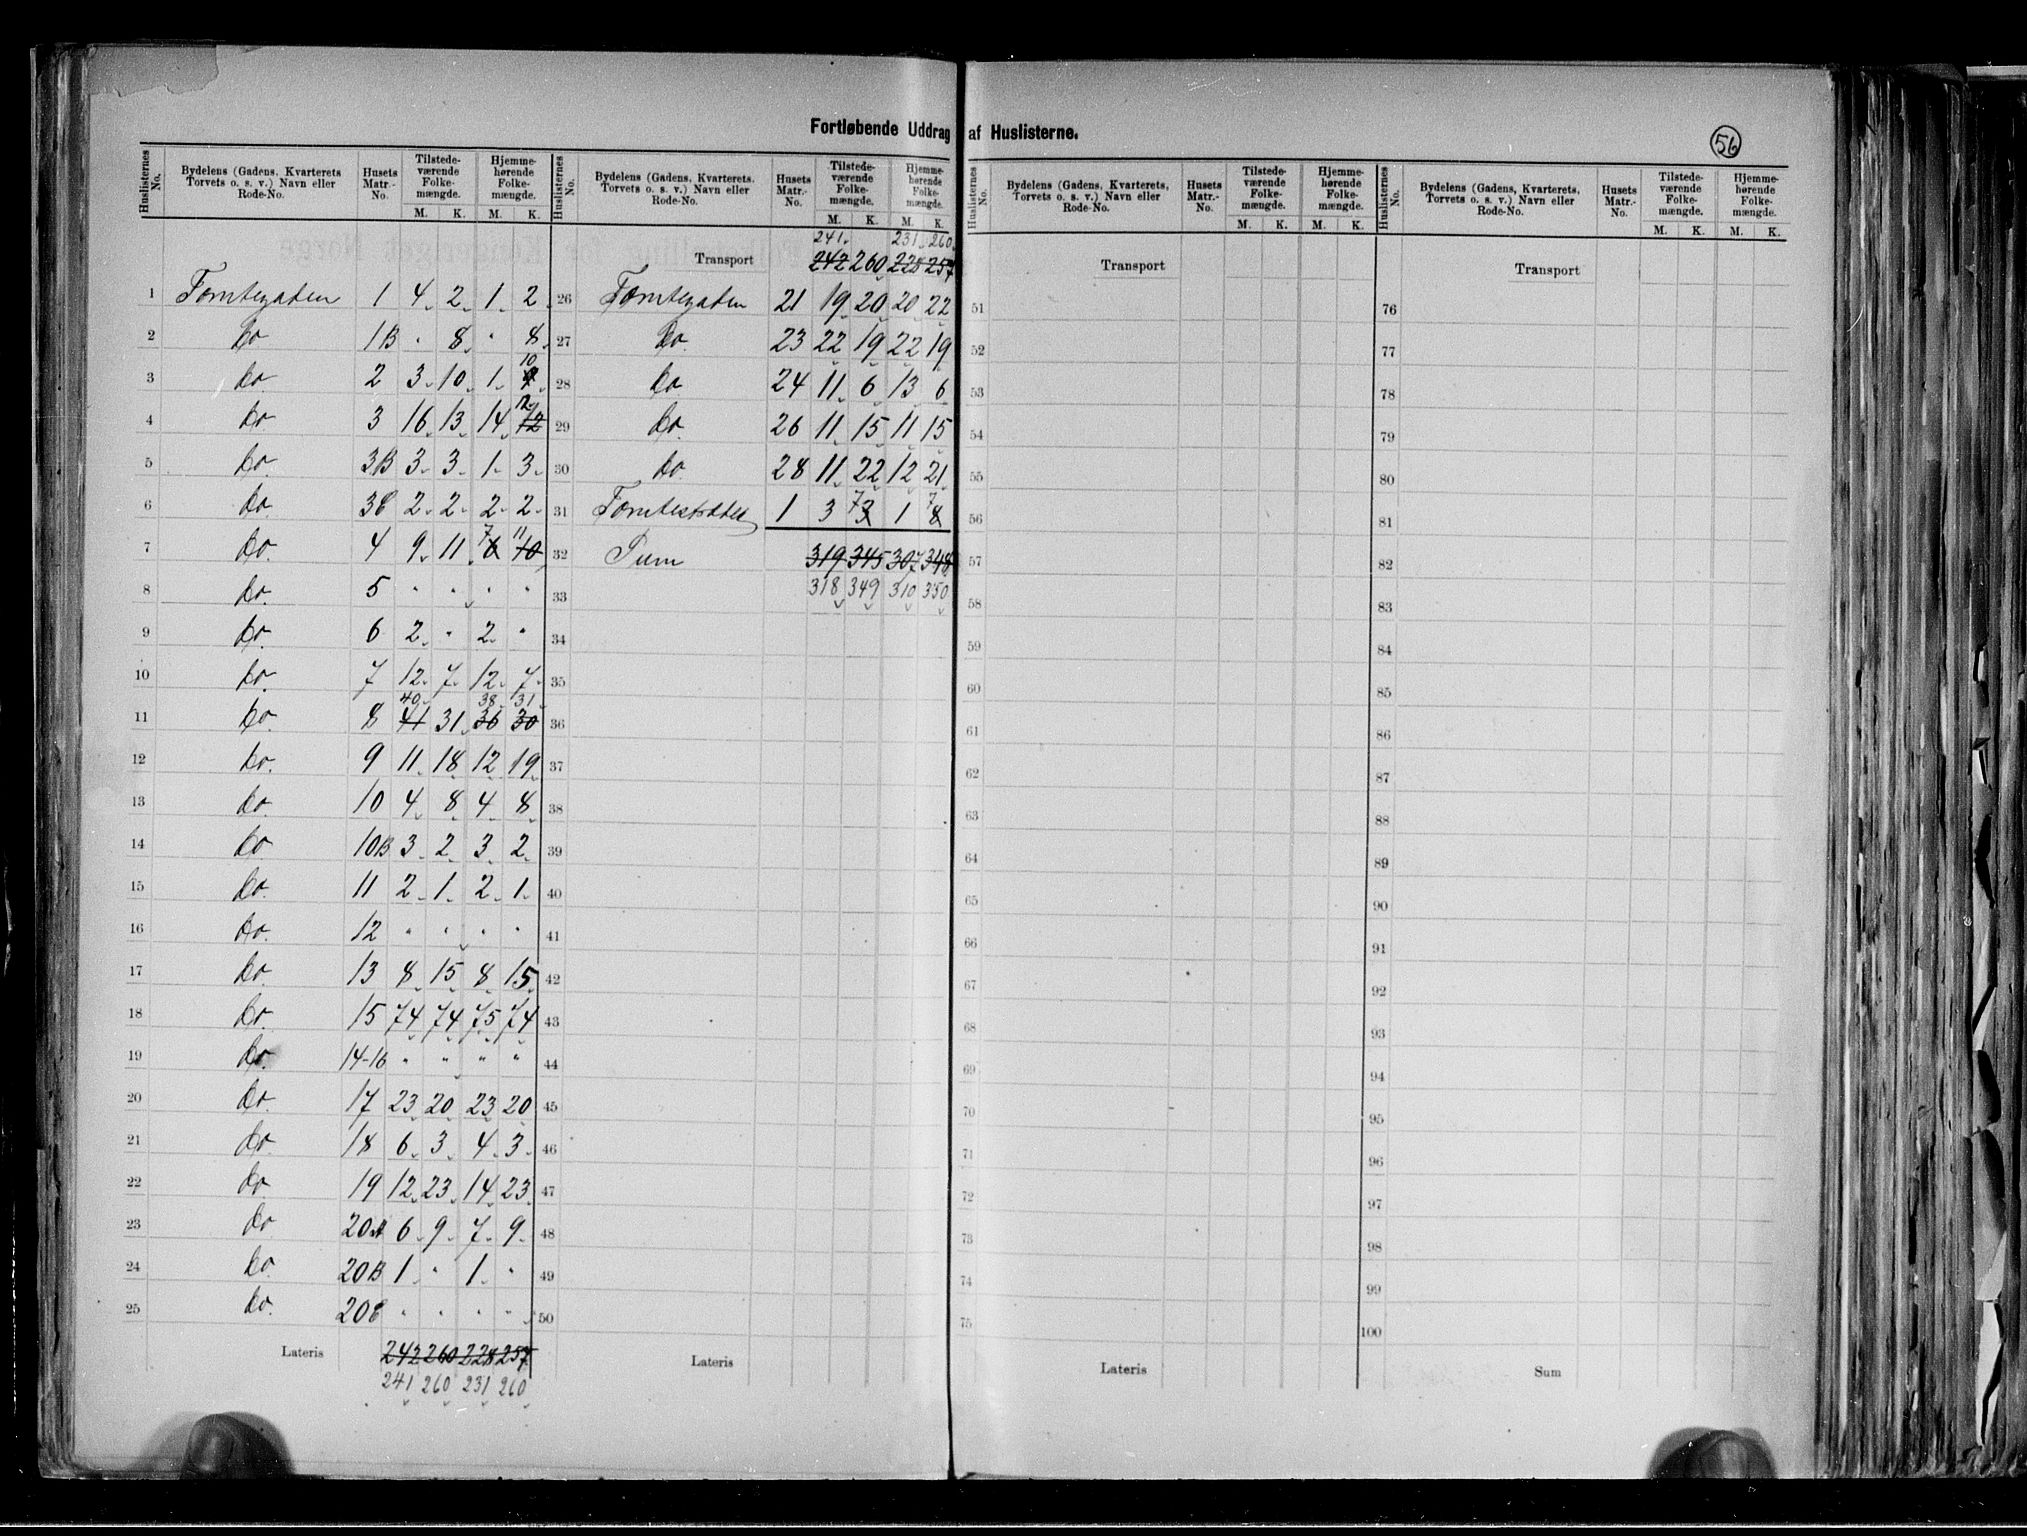 Fortløbende Uddrag af Huslisterne.
56
Huslisternes No. | Bydelens (Gadens, Kvarterets Torvets o. s. v.) Navn eller Rode-No. | Husets Matr.-No. | Tilstede-værende Folke-mængde. M. K. | Hjemme-hørende Folke-mængde. M. K.
1 Tomtegaden 1 4 2 1 2
2 do 1B " 8 " 8
3 do 2 3 10 1 10
4 do 3 16 13 14 12
5 do. 3B 3 3 1 3
6 do. 3C 2 2 2 2
7 do. 4 9 11 7 11
8 do. 5 " " " "
9 do. 6 2 " 2 "
10 do. 7 12 7 12 7
11 do. 8 41 40 31 36 38 30 31
12 do. 9 11 18 12 19
13 do. 10 4 8 4 8
14 do 10B 3 2 3 2
15 do. 11 2 1 2 1
16 do. 12 " " " "
17 do. 13 8 15 8 15
18 do. 15 74 74 75 74
19 do. 14-16 " " " "
20 do. 17 23 20 23 20
21 do. 18 6 3 4 3
22 do. 19 12 23 14 23
23 do. 20A 6 9 7 9
24 do. 20B 1 " 1 "
25 do. 20C " " " "
Lateris 242 260 228 257
241 260 231 260
Huslisternes No. | Bydelens (Gadens, Kvarterets. Torvets o. s. v.) Navn eller Rode-No. | Husets Matr.-No. | Tilstede-værende Folke-mængde. M. K. | Hjemme-hørende Folke-mængde. M. K.
241 231 260
Transport 242 260 228 257
26 Tomtegaden 21 19 20 20 22
27 do. 23 22 19 22 19
28 do 24 11 6 13 6
29 do. 26 11 15 11 15
30 do 28 11 22 12 21
31 Tomtestrædet 1 3 3 7 1 8 7
32 Sum 319 345 307 348
33 318 349 310 350
34
35
36
37
38
39
40
41
42
43
44
45
46
47
48
49
50
Lateris
Huslisternes No. | Bydelens (Gadens, Kvarterets, Torvets o. s. v.) Navn eller Rode-No. | Husets Matr.-No. | Tilstede-værende Folke-mængde. M. K. | Hjemme-hørende Folke-mængde. M. K.
Transport
51
52
53
54
55
56
57
58
59
60
61
62
63
64
65
66
67
68
69
70
71
72
73
74
75
Lateris
Huslisternes No. | Bydelens (Gadens, Kvarterets, Torvets o. s. v.) Navn eller Rode-No. | Husets Matr.-No. | Tilstede-værende Folke-mængde. M. K. | Hjemme-hørende Folke-mængde. M. K.
Transport
76
77
78
79
80
81
82
83
84
85
86
87
88
89
90
91
92
93
94
95
96
97
98
99
100
Sum